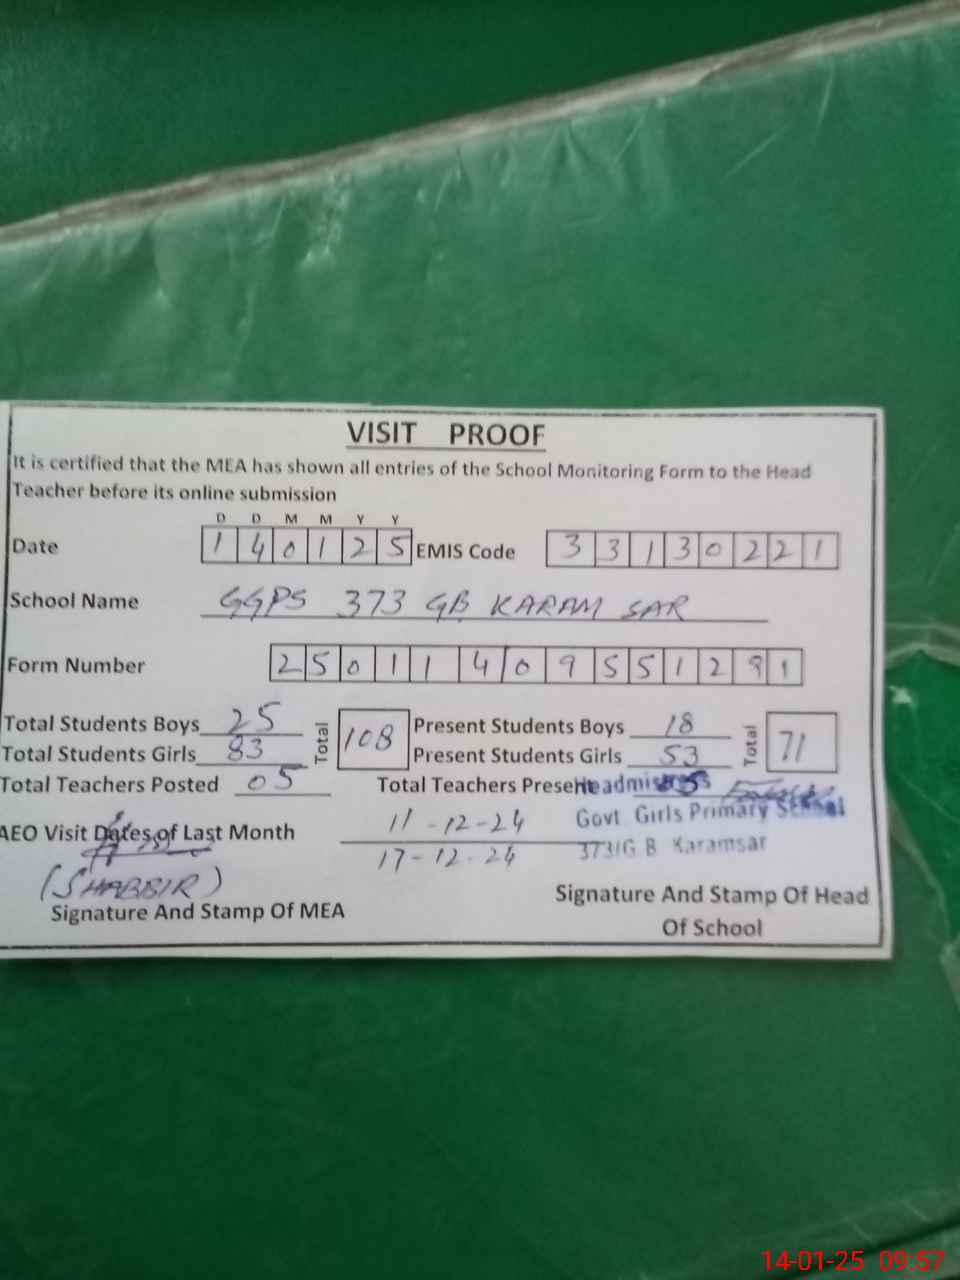 VISIT PROOF
It is certified that the MEA has shown all entries of the School Monitoring Form to the Head
Teacher before its online submission
D D M M Y Y
Date 1 4 0 1 2 5 EMIS Code 3 3 1 3 0 2 2 1
School Name GGPS 373 GB KARAM SAR
Form Number 2 5 0 1 1 4 0 9 5 5 1 2 9 1
Total Students Boys 25 Total 108 Present Students Boys 18 Total 71
Total Students Girls 83 Present Students Girls 53
Total Teachers Posted 05 Total Teachers Present 5
Headmistress
Govt Girls Primary School
373/G B Karamsar
AEO Visit Dates of Last Month 11-12-24
17-12-24
(SHABBIR)
Signature And Stamp Of MEA
Signature And Stamp Of Head
Of School
14-01-25 09:57